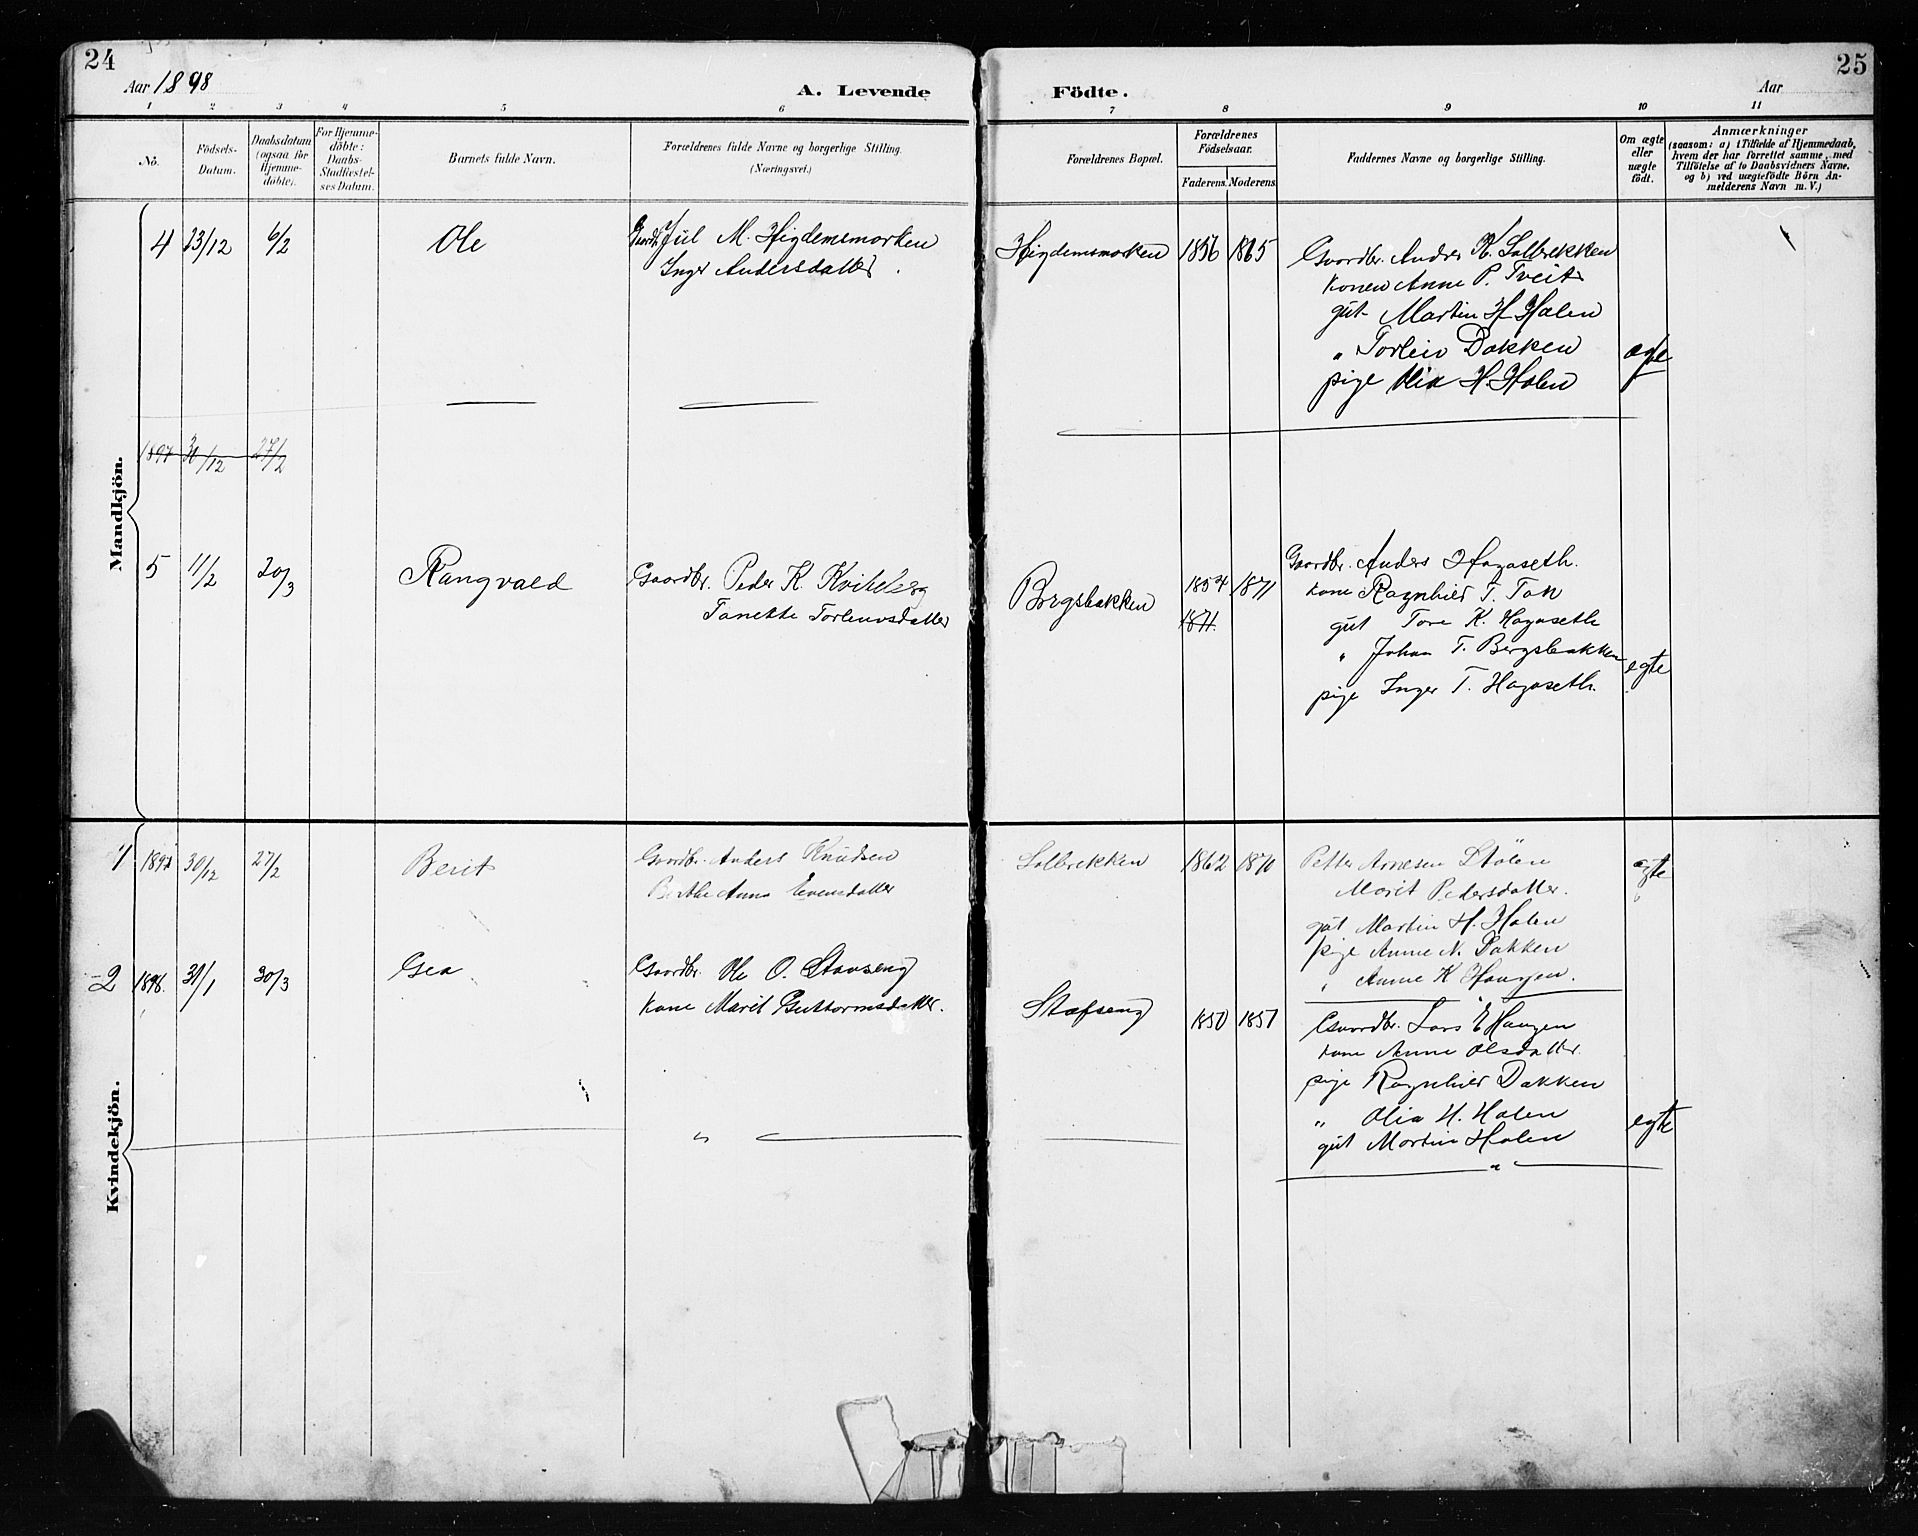 24
25
Aar 1898
A. Levende Födte.
Aar
1 2 3 4 5 6 7 8 9 10 11
Nö.
Födsels-
Datum.
Daabsdatum
(ogsaa for
Hjemme-
döbte).
For Hjemme-
döbte:
Daabs-
Stadfæstel-
ses Datum.
Barnets fulde Navn.
Forældrenes fulde Navne og borgerlige Stilling.
(Næringsvei.)
Forældrenes Bopæl.
Forældrenes
Födselsaar.
Faderens. Moderens.
Faddernes Navne og borgerlige Stilling.
Om ægte
eller
uægte
födt.
Anmærkninger
(saasom: a) i Tilfælde af Hjemmedaab,
hvem der har forrettet samme, med
Tilföielse af to Daabsvidners Navne.
og b) ved uægtefödte Börn An-
melderens Navn m. V.)
Mandkjön.
4 23/12 6/2 Ole
Gaardb. Jul M. Higdemsmorken
Inger Andersdatter.
Higdemsmorken 1856 1865
Gaardbr. Anders K. Solbrekken
konen Anne P. Tveit
gut Martin H Holen
" Torleiv Dokken
pige Olia H. Holen
ægte
1897 30/12 27/2
5 11/2 20/3 Rangvald
Gaardbr. Peder K. Kvikberg
Tanette Torleivsdatter
Bergsbakken 1854 1871
1871.
Gaardbr. Anders Hagaseth.
kone Ragnhild T. Tok
gut Tore K. Hagaseth
" Johan T. Bergsbakken
pige Inger T. Hagaseth.
egte
Kvindekjön.
1 1897 30/12 27/2 Berit
Gaardbr. Anders Knudsen
Berthe Anna Evensdatter
Solbrekken 1862 1870
Petter Arnesen Stölen
Marit Pedersdatter.
gut Martin H. Holen
pige Anne N. Dokken
" Anne K Haugen.
ægte
2 1898. 31/1 20/3 Gea
Gaardbr. Ole O. Stavseng
kone Marit Guttormsdatter.
Stafseng 1850 1857
Gaardbr. Lars E Haugen
kone Anne Olsdatter
pige Ragnhild Dokken
" Olia H. Holen
gut Martin Holen
egte